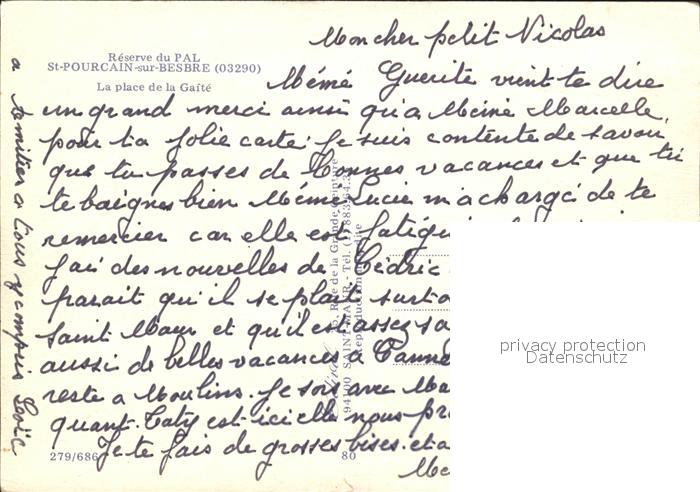 Mon cher petit Nicolas
Réserve du PAL
St-POURCAIN-sur-BESBRE (03290)
La place de la Gaîté
Mémé Guerite vient te dire
un grand merci ainsi qu'a Mémé Marcelle,
pour ta jolie carte. Je suis contente de savoir
que tu passes de bonnes vacances et que tu
te baignes bien Mémé Lucie m'a chargé de te
remercier car elle est fatigu
j'ai des nouvelles de Cédric
parait qu'il se plait surto
Saint Maur et qu'il est assez sa
aussi de belles vacances à Canne
reste a Moulins. Je sors avec Ma
quant. Taty est ici elle nous pr
Je te fais de grosses bises. et a
279/686
80
a tous y compris Loïc
94100 SAINT-MAUR - Tél.
privacy protection
Datenschutz